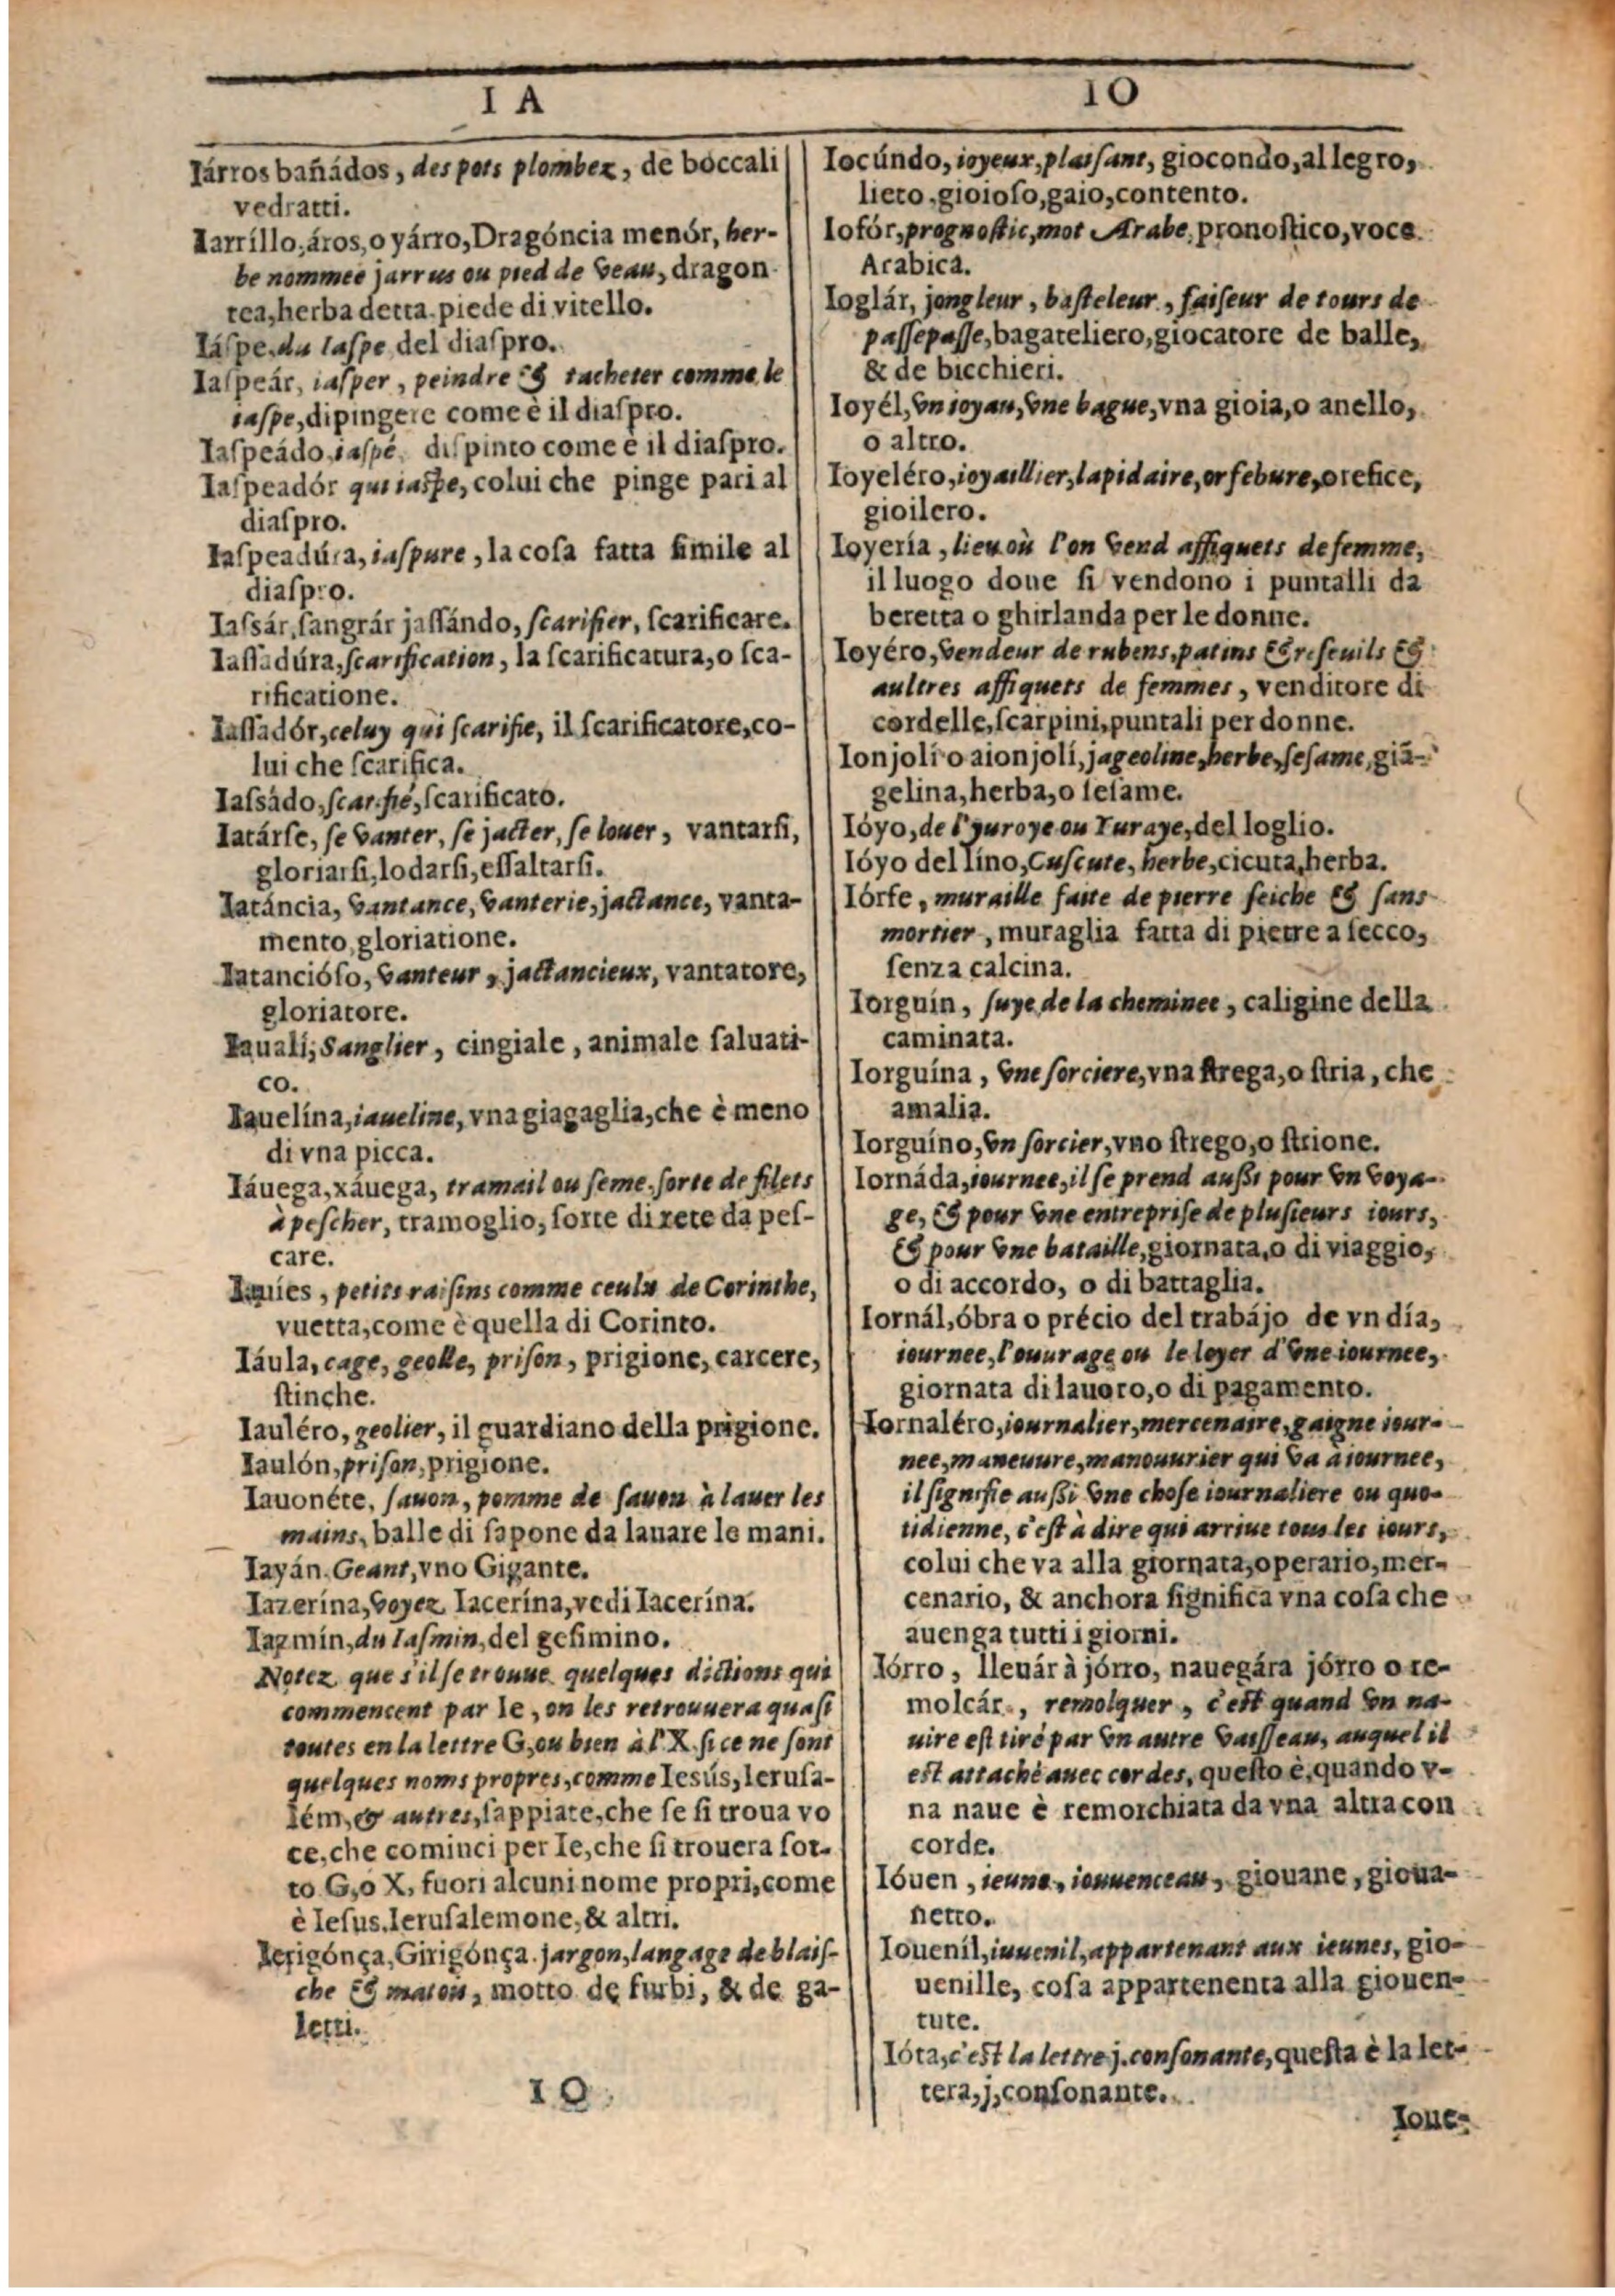 I A
Iárros bañádos, des pots plombez, de boccali
vedratti.
Iarríllo, áros, o yárro, Dragóncia menór, her-
be nommee jarrus ou pied de veau, dragon
tea, herba detta piede di vitello.
Iáſpe, du Iaſpe, del diaſpro.
Iaſpeár, iaſper, peindre & tacheter comme le
iaſpe, dipingere come è il diaſpro.
Iaſpeádo, iaſpé, dispinto come è il diaſpro.
Iaſpeadór qui iaspe, colui che pinge pari al
diaſpro.
Iaſpeadúra, iaſpure, la coſa fatta ſimile al
diaſpro.
Iaſsár, ſangrár jaſſándo, ſcarifier, ſcarificare.
Iaſſadúra, ſcarification, la ſcarificatura, o ſca-
rificatione.
Iaſſadór, celuy qui ſcarifie, il ſcarificatore, co-
lui che ſcarifica.
Iaſsádo, ſcarifié, ſcarificato.
Iatárſe, ſe vanter, ſe jacter, ſe louer, vantarſi,
gloriarſi, lodarſi, eſſaltarſi.
Iatáncia, vantance, vanterie, jactance, vanta-
mento, gloriatione.
Iatancióſo, vanteur, jactancieux, vantatore,
gloriatore.
Iaualí, Sanglier, cingiale, animale ſaluati-
co.
Iauelína, iaueline, vna giagaglia, che è meno
di vna picca.
Iáuega, xáuega, tramail ou ſeme, ſorte de filets
à peſcher, tramoglio, ſorte di rete da peſ-
care.
Iauíes, petits raiſins comme ceulx de Corinthe,
vuetta, come è quella di Corinto.
Iáula, cage, geolle, priſon, prigione, carcere,
ſtinche.
Iauléro, geolier, il guardiano della prigione.
Iaulón, priſon, prigione.
Iauonéte, ſauon, pomme de ſauon à lauer les
mains, balle di ſapone da lauare le mani.
Iayán, Geant, vno Gigante.
Iazerína, voyez Iacerína, vedi Iacerína.
Iazmín, du Iaſmin, del geſimino.
Notez que s'il ſe trouue quelques dictions qui
commencent par Ie, on les retrouuera quaſi
toutes en la lettre G, ou bien à l'X, ſi ce ne ſont
quelques noms propres, comme Iesús, Ieruſa-
lém, & autres, ſappiate, che ſe ſi troua vo
ce, che cominci per Ie, che ſi trouera ſot-
to G, o X, fuori alcuni nome propri, come
è Ieſus, Ieruſalemone, & altri.
Ierigónça, Girigónça, jargon, langage de blaiſ-
che & matois, motto de furbi, & de ga-
letti.
I O
I O
Iocúndo, ioyeux, plaiſant, giocondo, allegro,
lieto, gioioſo, gaio, contento.
Iofór, prognoſtic, mot Arabe, pronoſtico, voce
Arabica.
Ioglár, jongleur, baſteleur, faiſeur de tours de
paſſepaſſe, bagateliero, giocatore de balle,
& de bicchieri.
Ioyél, vn ioyau, vne bague, vna gioia, o anello,
o altro.
Ioyeléro, ioyaillier, lapidaire, orfebure, orefice,
gioilero.
Ioyería, lieu où l'on vend affiquets de femme,
il luogo doue ſi vendono i puntalli da
beretta o ghirlanda per le donne.
Ioyéro, vendeur de rubens, patins & reſeuils &
aultres affiquets de femmes, venditore di
cordelle, ſcarpini, puntali per donne.
Ionjolí o aionjolí, jageoline, herbe, ſeſame, giā-
gelina, herba, o ſeſame.
Ióyo, de l'yuroye ou Yuraye, del loglio.
Ióyo del líno, Cuſcute, herbe, cicuta, herba.
Iórfe, muraille faite de pierre ſeiche & ſans
mortier, muraglia fatta di pietre a ſecco,
ſenza calcina.
Iorguín, ſuye de la cheminee, caligine della
caminata.
Iorguína, vne ſorciere, vna ſtrega, o ſtria, che
amalia.
Iorguíno, vn ſorcier, vno ſtrego, o ſtrione.
Iornáda, iournee, il ſe prend auſſi pour vn voya-
ge, & pour vne entrepriſe de pluſieurs iours,
& pour vne bataille, giornata, o di viaggio,
o di accordo, o di battaglia.
Iornál, óbra o précio del trabájo de vn día,
iournee, l'ouurage ou le loyer d'vne iournee,
giornata di lauoro, o di pagamento.
Iornaléro, iournalier, mercenaire, gaigne iour-
nee, maneuure, manouurier qui va à iournee,
il ſignifie auſſi vne choſe iournaliere ou quo-
tidienne, c'eſt à dire qui arriue tous les iours,
colui che va alla giornata, operario, mer-
cenario, & anchora ſignifica vna coſa che
auenga tutti i giorni.
Iórro, lleuár à jórro, nauegára jórro o re-
molcár, remolquer, c'eſt quand vn na-
uire eſt tiré par vn autre vaiſſeau, auquel il
eſt attaché auec cordes, queſto è, quando v-
na naue è remorchiata da vna altra con
corde.
Ióuen, ieune, iouuenceau, giouane, gioua-
netto.
Ioueníl, iuuenil, appartenant aux ieunes, gio-
uenille, coſa appartenenta alla giouen-
tute.
Ióta, c'eſt la lettre j. conſonante, queſta è la let-
tera, j, conſonante.
Ioue-